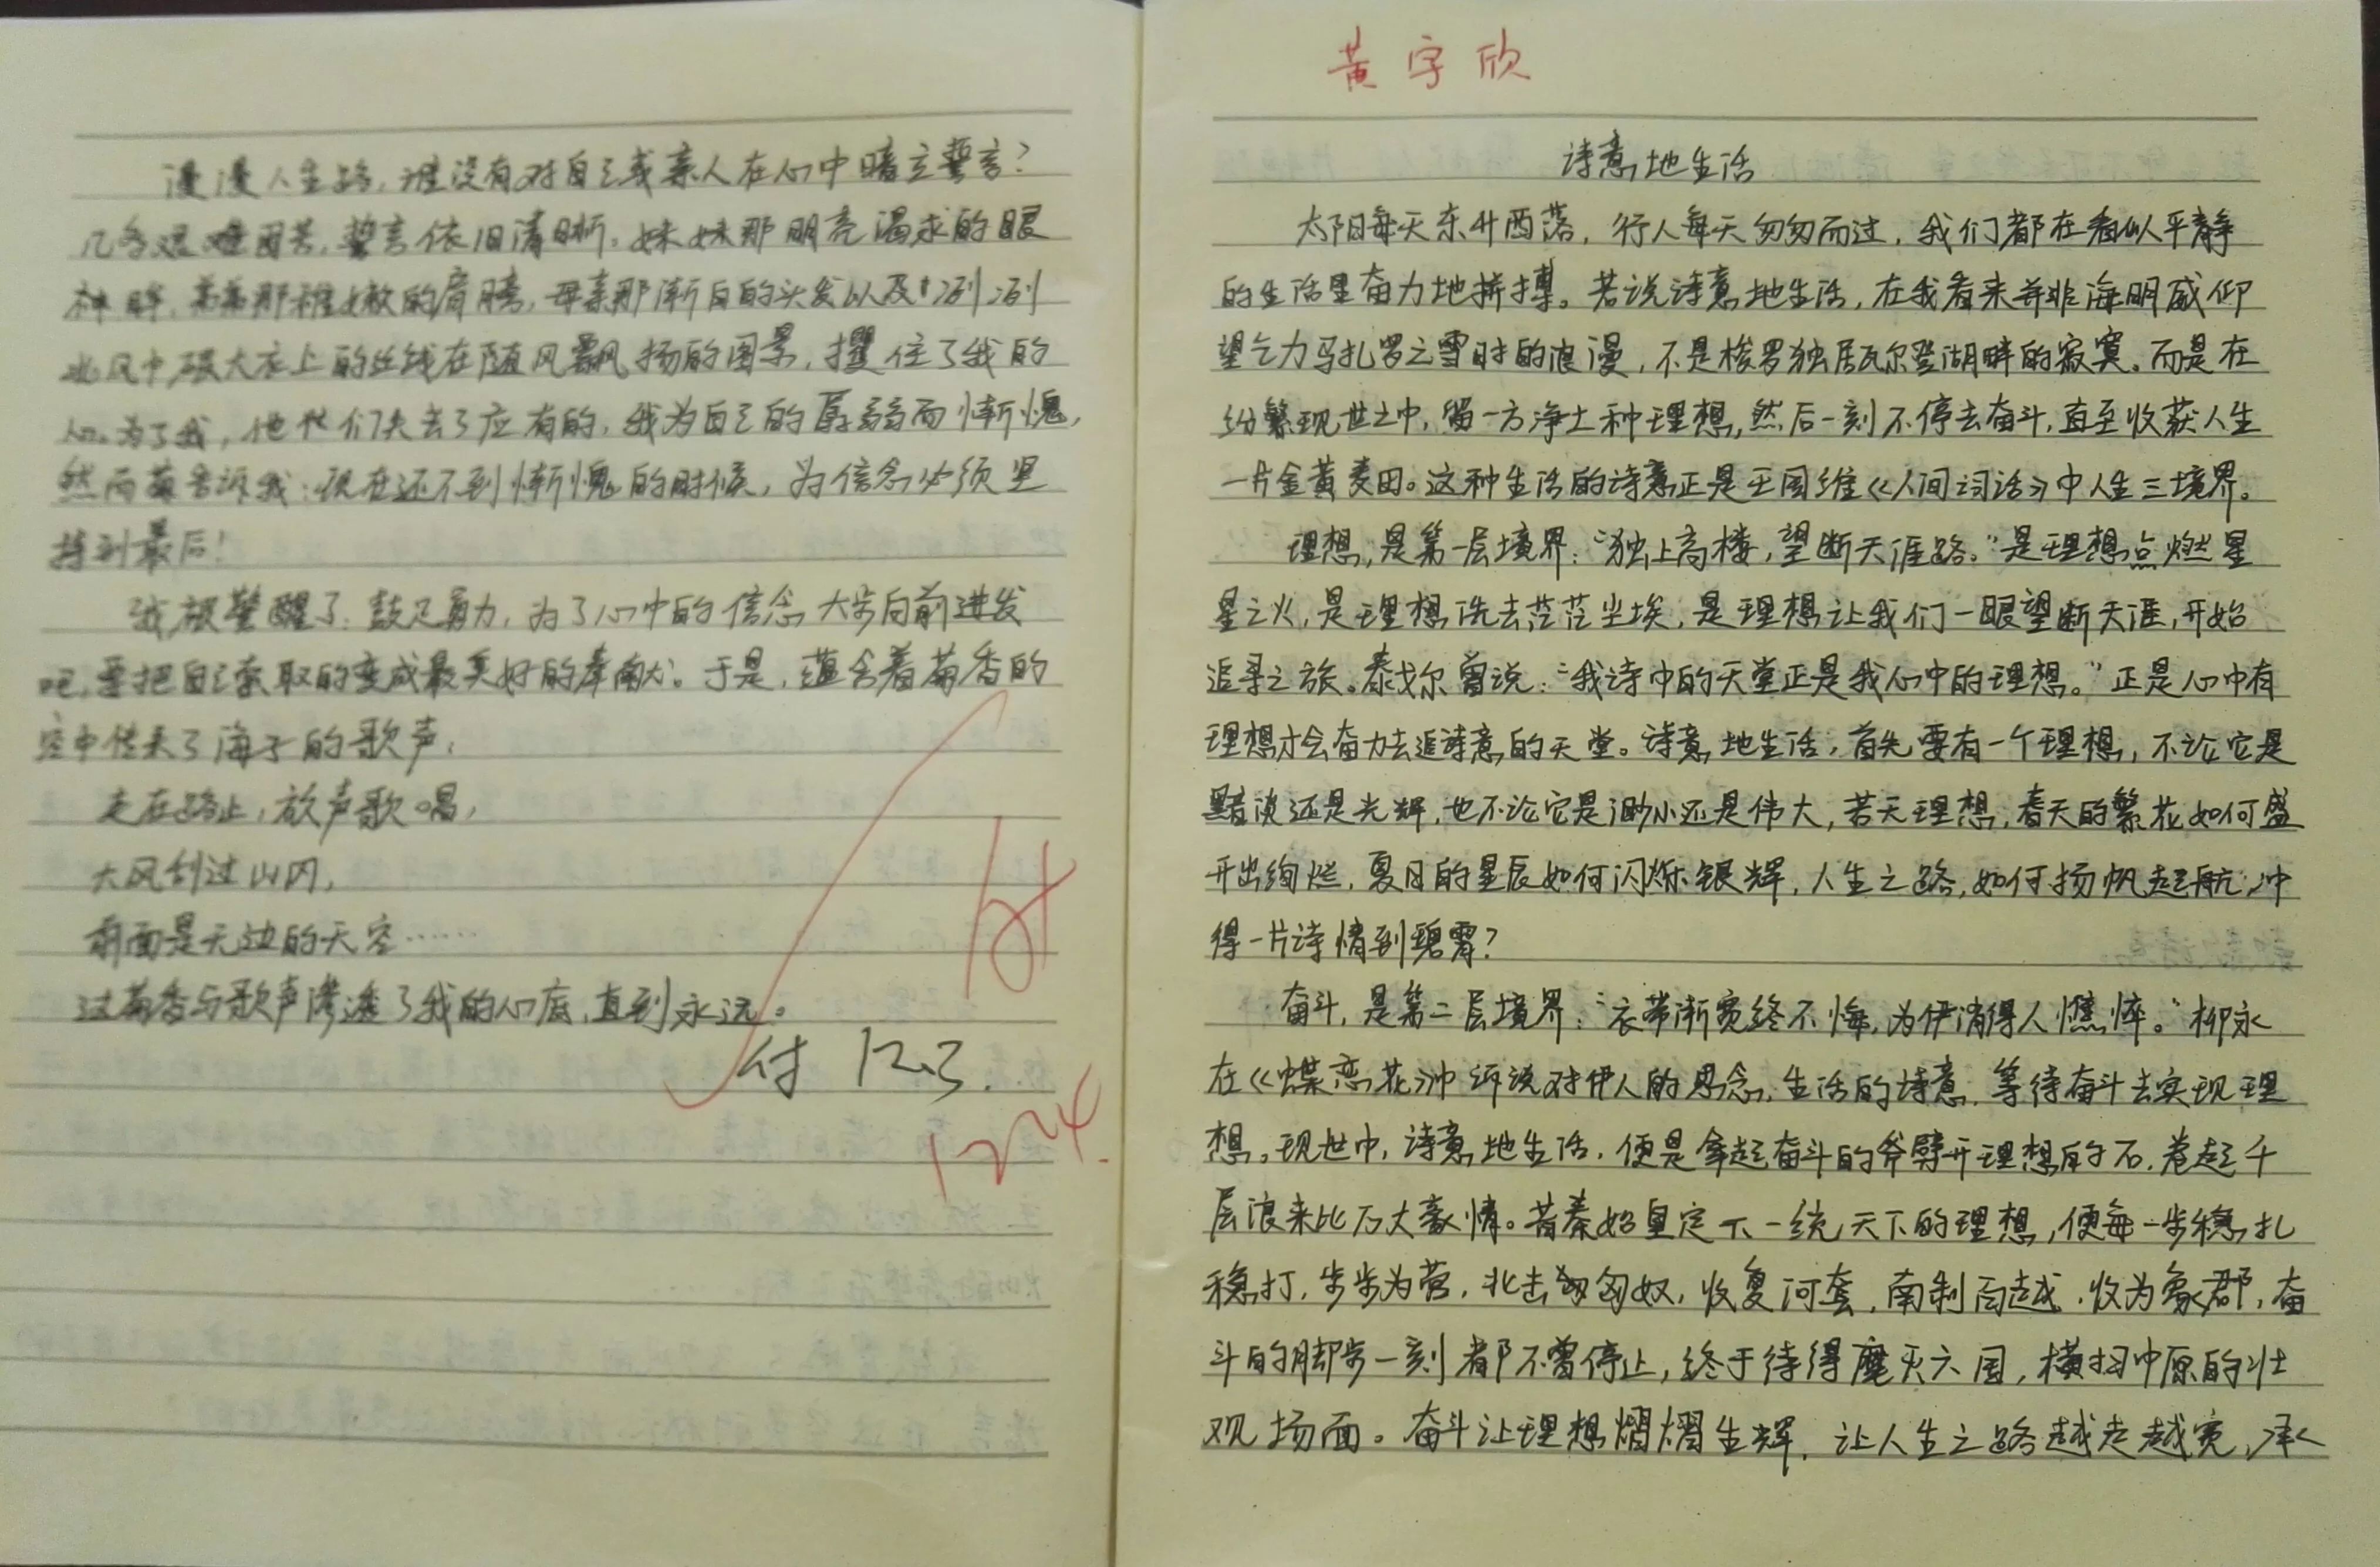 漫漫人生路，谁没有对自己或亲人在心中暗立誓言？
几多艰难困苦，誓言依旧清晰。妹妹那明亮渴求的眼
神眸，弟弟那稚嫩的肩膀，母亲那渐白的头发以及凛冽
北风中大衣上的丝线在随风飘扬的图景，攫住了我的
心。为了我，他们失去了应有的，我为自己的孱弱而惭愧，
然而菊告诉我：现在还不到惭愧的时候，为信念必须坚
持到最后！
我被警醒了：鼓足勇力，为了心中的信念大步向前进发
吧，要把自己索取的变成最美好的奉献。于是，蕴含着菊香的
空中传来了海子的歌声：
走在路上，放声歌唱，
大风刮过山冈，
前面是无边的天空……
这菊香与歌声渗透了我的心底，直到永远。
付 12.3.
12.4.
黄宇欣
诗意地生活
太阳每天东升西落，行人每天匆匆而过，我们都在看似平静
的生活里奋力地拼搏。若说诗意地生活，在我看来并非海明威仰
望乞力马扎罗之雪时的浪漫，不是梭罗独居瓦尔登湖畔的寂寞。而是在
纷繁现世之中，留一方净土种理想，然后一刻不停去奋斗，直至收获人生
一片金黄麦田。这种生活的诗意正是王国维《人间词话》中人生三境界。
理想，是第一层境界：“独上高楼，望断天涯路。”是理想点燃星
星之火，是理想洗去茫茫尘埃，是理想让我们一眼望断天涯，开始
追寻之旅。泰戈尔曾说：“我诗中的天堂正是我心中的理想。”正是心中有
理想才会奋力去追诗意的天堂。诗意地生活，首先要有一个理想，不论它是
黯淡还是光辉，也不论它是渺小还是伟大，若无理想，春天的繁花如何盛
开出绚烂，夏日的星辰如何闪烁银辉，人生之路，如何扬帆起航，冲
得一片诗情到碧霄？
奋斗，是第二层境界：“衣带渐宽终不悔，为伊消得人憔悴。”柳永
在《蝶恋花》中诉说对伊人的思念，生活的诗意，等待奋斗去实现理
想。现世中，诗意地生活，便是拿起奋斗的斧劈开理想的石，卷起千
层浪来比万丈豪情。昔秦始皇定下一统天下的理想，便每一步稳扎
稳打，步步为营，北击匈奴，收复河套，南制百越，收为象郡，奋
斗的脚步一刻都不曾停止，终于待得麾灭六国，横扫中原的壮
观场面。奋斗让理想熠熠生辉，让人生之路越走越宽，承